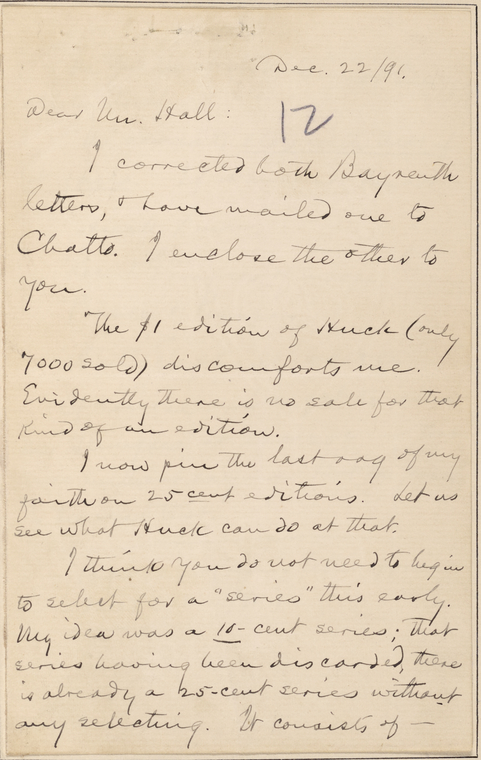 Dec. 22/91.
Dear Mr. Hall:
12
I corrected both Bayreuth
letters, & have mailed one to
Chatto. I enclose the other to
you.
The $1 edition of Huck (only
7000 sold) discomforts me.
Evidently there is no sale for that
kind of an edition.
I now pin the last rag of my
faith on 25 cent editions. Let us
see what Huck can do at that.
I think you do not need to begin
to select for a "series" this early.
My idea was a 10-cent series; that
series having been discarded, there
is already a 25-cent series without
any selecting. It consists of —